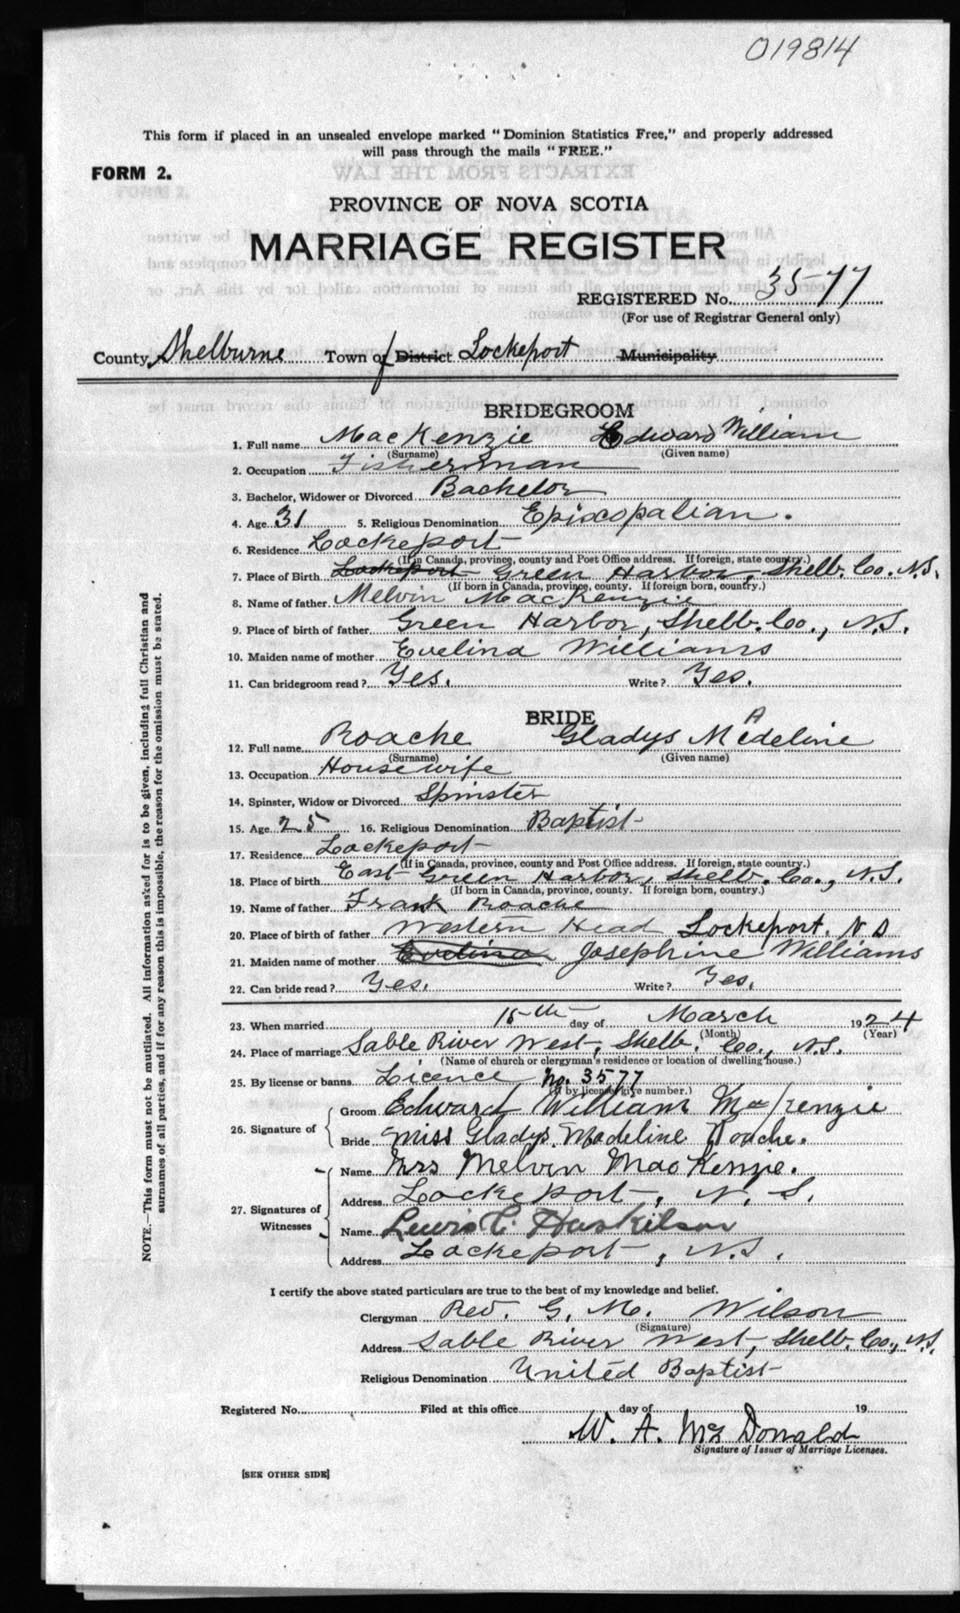 019814
This form if placed in an unsealed envelope marked "Dominion Statistics Free," and properly addressed
will pass through the mails "FREE."
FORM 2.
PROVINCE OF NOVA SCOTIA
MARRIAGE REGISTER
REGISTERED No. 3577
(For use of Registrar General only)
County Shelburne Town of District Lockeport Municipality
BRIDEGROOM
1. Full name MacKenzie Edward William
(Surname) (Given name)
2. Occupation Fisherman
3. Bachelor, Widower or Divorced Bachelor
4. Age 31 5. Religious Denomination Episcopalian.
6. Residence Lockeport
(If in Canada, province, county and Post Office address. If foreign, state country.)
7. Place of Birth Lockeport Green Harbor, Shelb. Co. N.S.
(If born in Canada, province, county. If foreign born, country.)
8. Name of father Melvin MacKenzie
9. Place of birth of father Green Harbor, Shelb. Co., N.S.
10. Maiden name of mother Evelina Williams
11. Can bridegroom read? Yes. Write? Yes.
BRIDE
12. Full name Roache Gladys MAdeline
(Surname) (Given name)
13. Occupation Housewife
14. Spinster, Widow or Divorced Spinster
15. Age 25 16. Religious Denomination Baptist
17. Residence Lockeport
(If in Canada, province, county and Post Office address. If foreign, state country.)
18. Place of birth East Green Harbor, Shelb. Co., N.S.
(If born in Canada, province, county. If foreign born, country.)
19. Name of father Frank Roache
20. Place of birth of father Western Head Lockeport. N S
21. Maiden name of mother Evelina Josephine Williams
22. Can bride read? Yes. Write? Yes.
23. When married 15th day of March 1924
(Month) (Year)
24. Place of marriage Sable River West, Shelb. Co., N.S.
(Name of church or clergyman's residence or location of dwelling house.)
25. By license or banns Licence No. 3577
(If by license give number.)
26. Signature of Groom Edward William MacKenzie
Bride Miss Gladys Madeline Roache.
27. Signatures of Witnesses
Name Mrs Melvin MacKenzie.
Address Lockeport, N. S.
Name Lewis C. Huskilson
Address Lockeport, N.S.
I certify the above stated particulars are true to the best of my knowledge and belief.
Clergyman Rev. G. M. Wilson
(Signature)
Address Sable River West, Shelb. Co., N.S.
Religious Denomination United Baptist
Registered No. Filed at this office day of 19
W. A. McDonald
Signature of Issuer of Marriage Licenses.
[SEE OTHER SIDE]
NOTE.—This form must not be mutilated. All information asked for is to be given, including full Christian and
surnames of all parties, and if for any reason this is impossible, the reason for the omission must be stated.